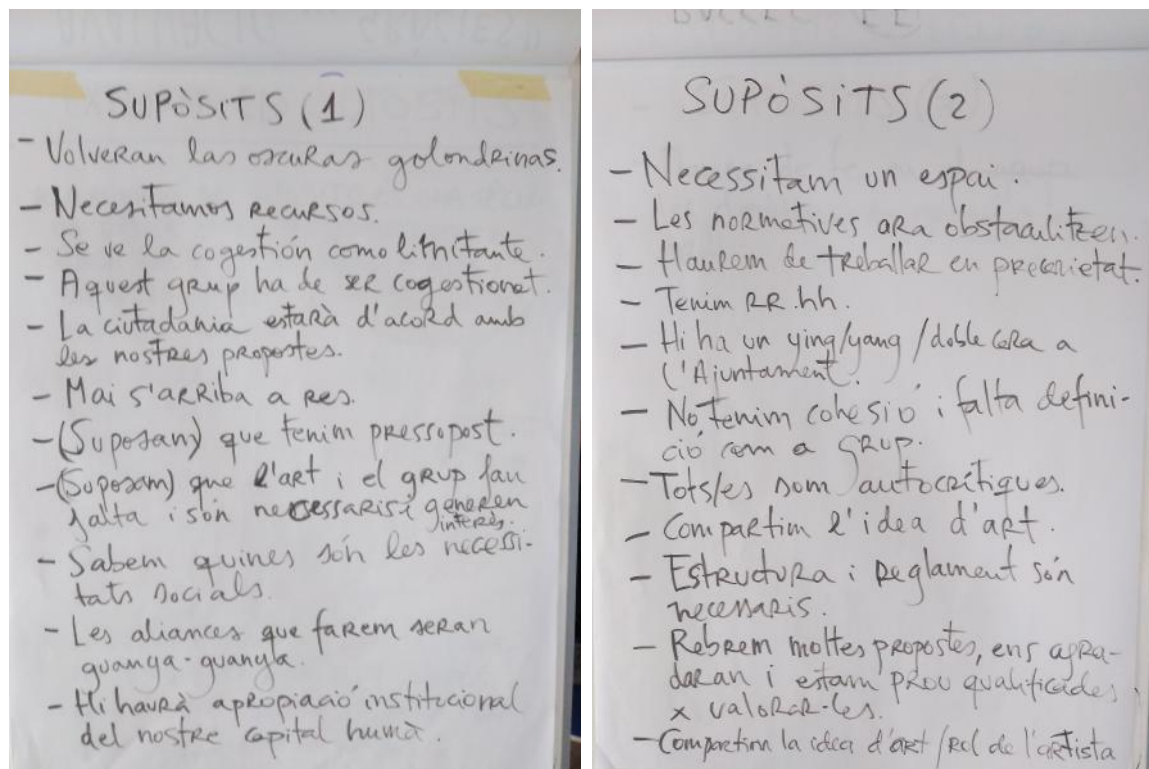 SUPÒSITS (1)
- Volveran las oscuras golondrinas.
- Necesitamos recursos.
- Se ve la cogestión como limitante.
- Aquest grup ha de ser cogestionat.
- La ciutadania estarà d'acord amb
les nostres propostes.
- Mai s'arriba a res.
- (Suposam) que tenim pressopost.
- (Suposam) que l'art i el grup fan
falta i són necessaris i generen
interès.
- Sabem quines són les necessi-
tats socials.
- Les aliances que farem seran
guanya-guanya.
- Hi haurà apropiació institucional
del nostre capital humà.
SUPÒSITS (2)
- Necessitam un espai.
- Les normatives ara obstaculitzen.
- Haurem de treballar en precarietat.
- Tenim RR.hh.
- Hi ha un ying/yang /doble cara a
l'Ajuntament.
- No tenim cohesió i falta defini-
ció com a grup.
- Tots/es som autocrítiques.
- Compartim l'idea d'art.
- Estructura i reglament són
necessaris.
- Rebrem moltes propostes, ens agra-
daran i estam prou qualificades
x valorar-les.
- Compartim la idea d'art /rol de l'artista